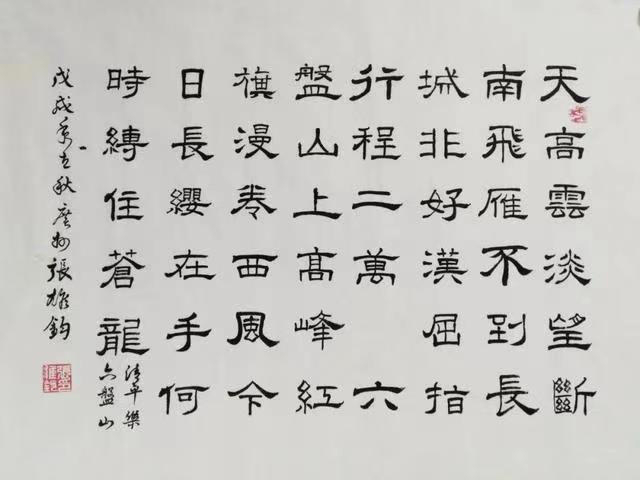 天高雲淡望斷
南飛雁不到長
城非好漢屈指
行程二萬六
盤山上髙峰紅
旗漫卷西風今
日長纓在手何
時縛住蒼龍
清平樂
六盤山
戊戌年立秋廣州張雄鈞